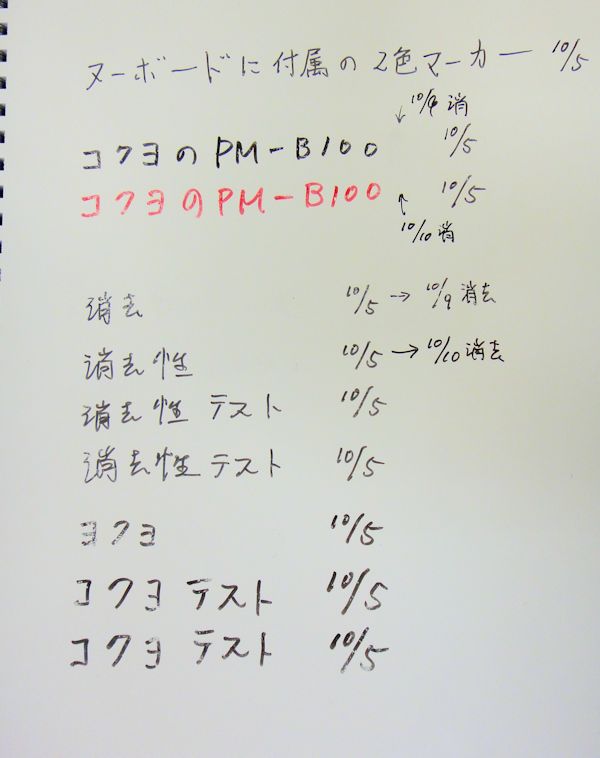 ヌーボードに付属の2色マーカー 10/5
↓ 10/9 消
コクヨのPM-B100 10/5
コクヨのPM-B100 10/5
↑ 10/10 消
消去 10/5 → 10/9 消去
消去性 10/5 → 10/10 消去
消去性 テスト 10/5
消去性 テスト 10/5
ヨクヨ 10/5
コクヨ テスト 10/5
コクヨ テスト 10/5